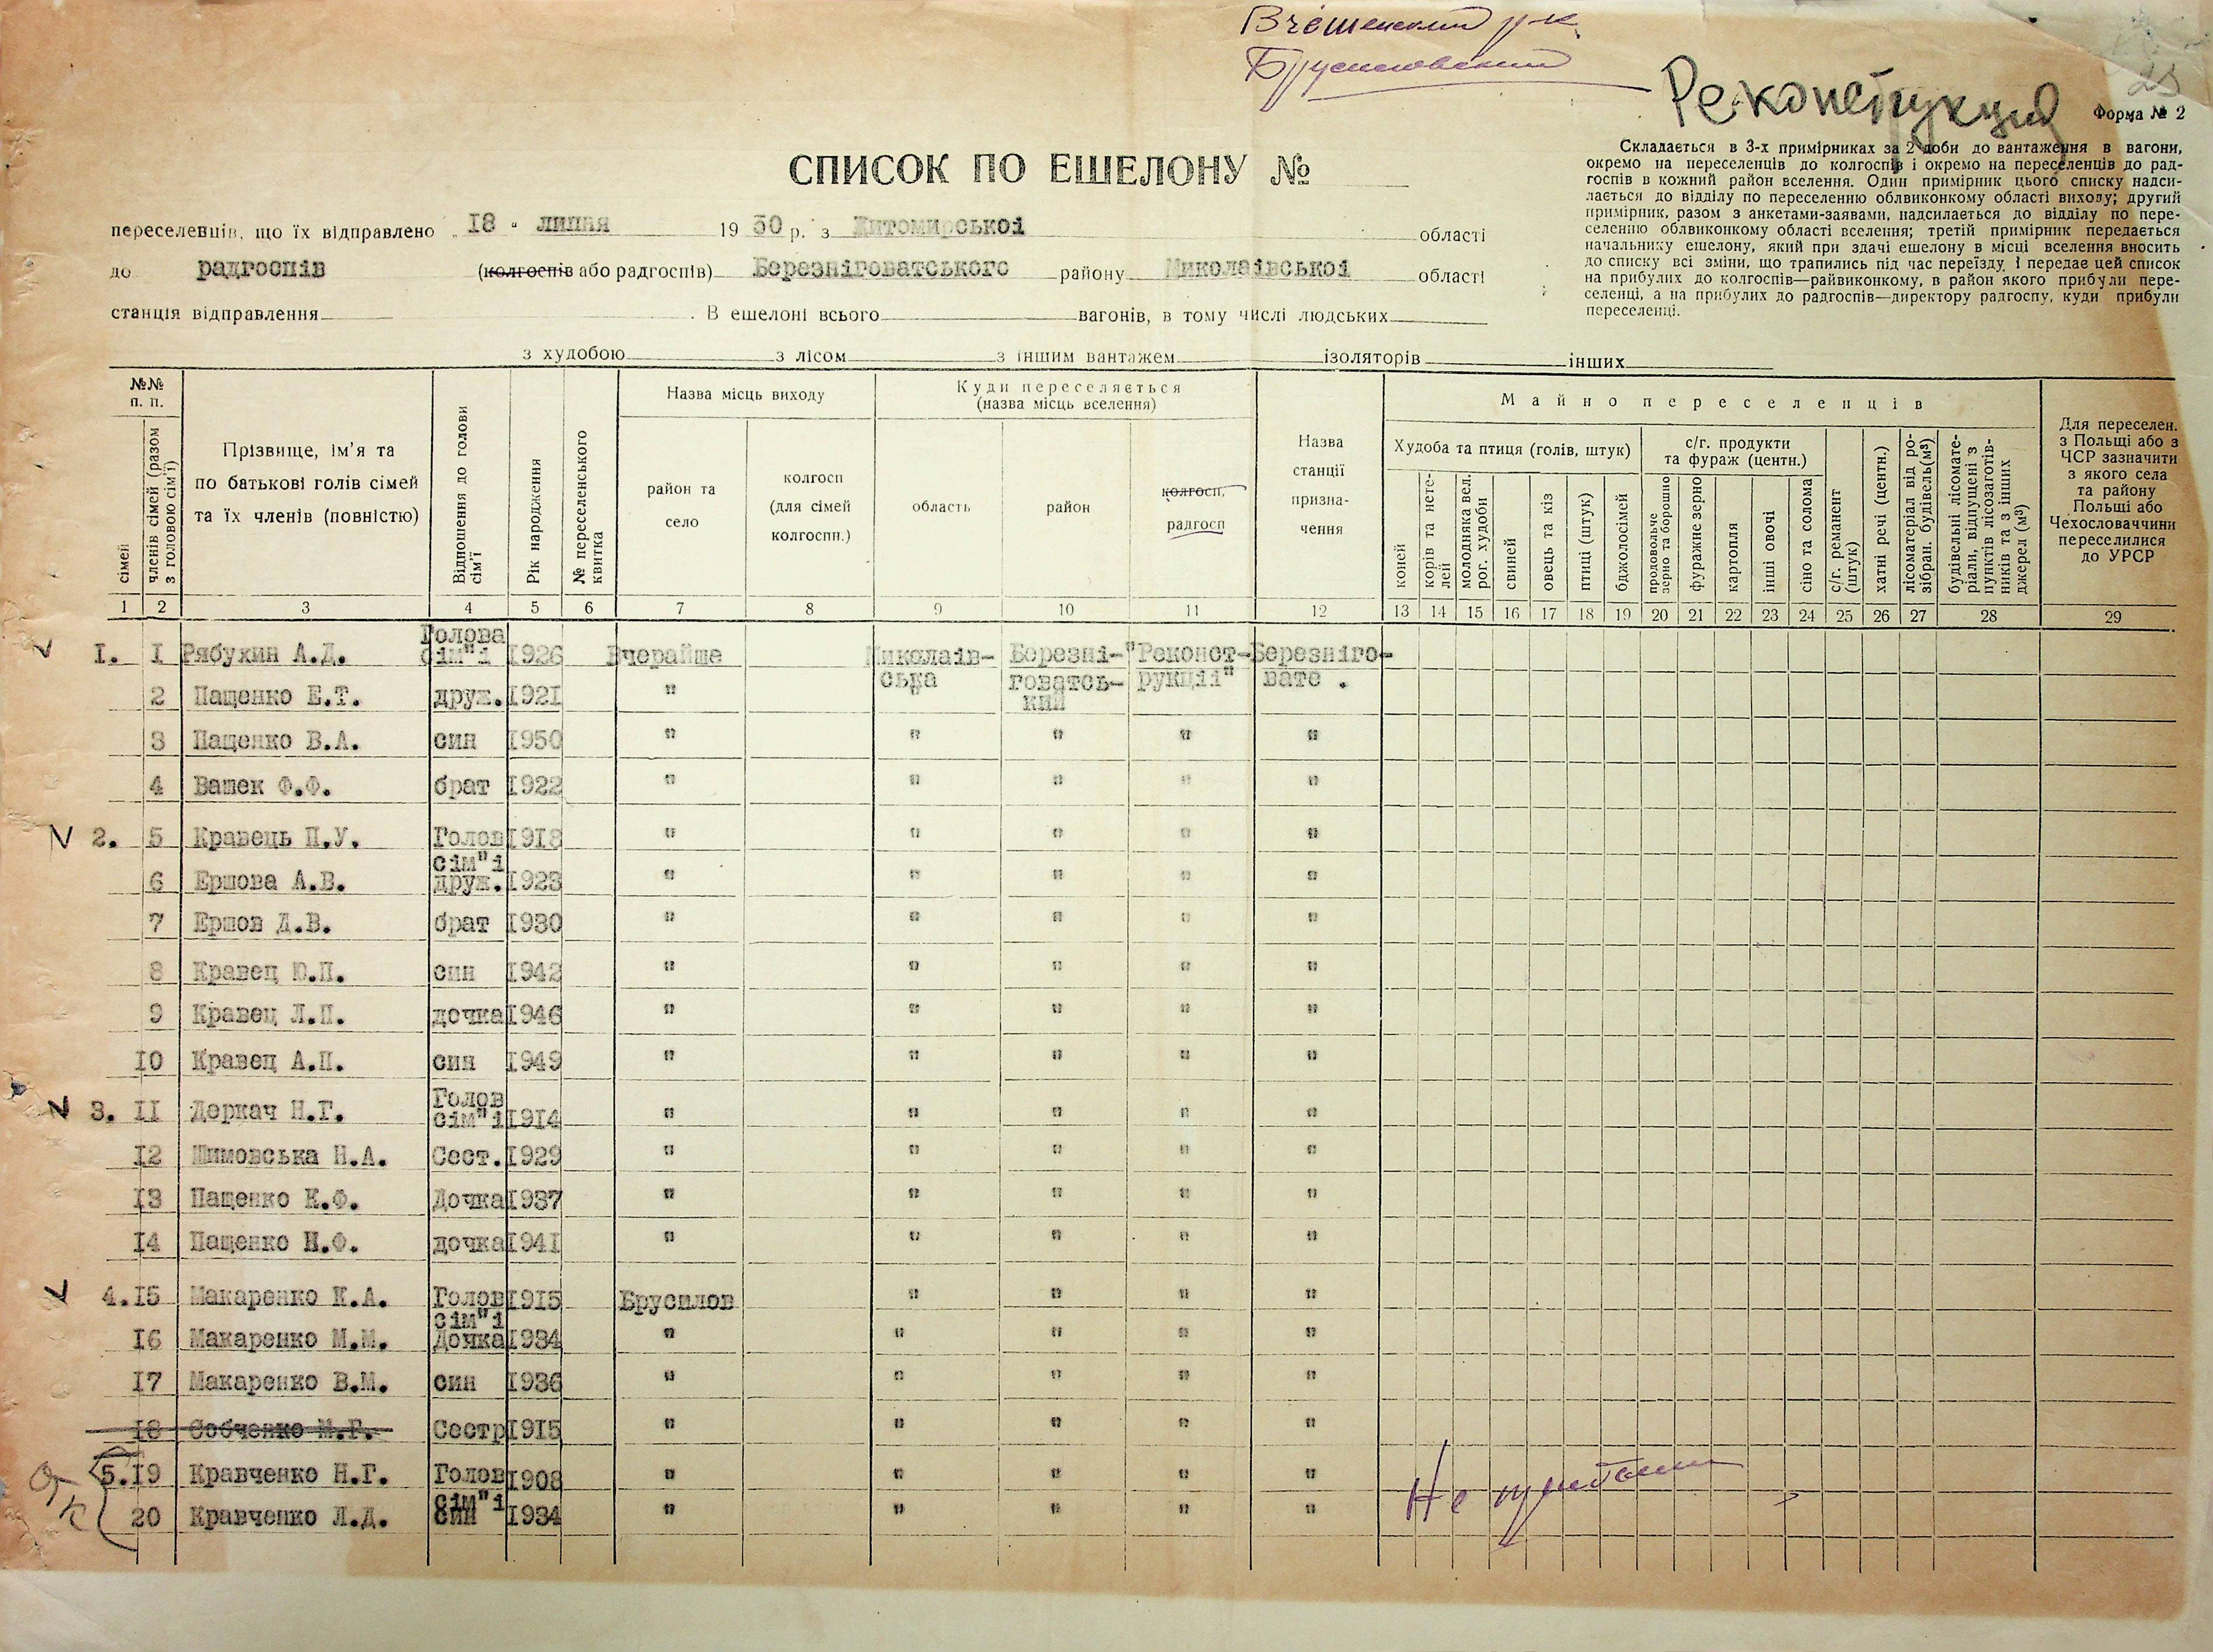 Брусиловский
Реконструкция
25
Форма № 2
СПИСОК ПО ЕШЕЛОНУ №
Складається в 3-х примірниках за 2 доби до вантаження в вагони,
окремо на переселенців до колгоспів і окремо на переселенців до рад-
госпів в кожний район вселення. Один примірник цього списку надси-
лається до відділу по переселенню облвиконкому області виходу; другий
примірник, разом з анкетами-заявами, надсилається до відділу по пере-
селенню облвиконкому області вселення; третій примірник передається
начальнику ешелону, який при здачі ешелону в місці вселення вносить
до списку всі зміни, що трапились під час переїзду, і передає цей список
на прибулих до колгоспів—райвиконкому, в район якого прибули пере-
селенці, а на прибулих до радгоспів—директору радгоспу, куди прибули
переселенці.
переселенців, що їх відправлено „18 " липня 1950 р. з Житомирської області
до радгоспів (колгоспів або радгоспів) Березніговатського району Миколаівськоі області
станція відправлення . В ешелоні всього вагонів, в тому числі людських
з худобою з лісом з іншим вантажем ізоляторів інших
№№ п. п.
сімей
членів сімей (разом з головою сім'ї)
Прізвище, ім'я та
по батькові голів сімей
та їх членів (повністю)
Відношення до голови сім'ї
Рік народження
№ переселенського квитка
Назва місць виходу
район та
село
колгосп
(для сімей
колгоспн.)
Куди переселяється
(назва місць вселення)
область
район
колгосп,
радгосп
Назва
станції
призна-
чення
Майно переселенців
Худоба та птиця (голів, штук)
коней
корів та нете-лей
молодняка вел. рог. худоби
свиней
овець та кіз
птиці (штук)
бджолосімей
с/г. продукти
та фураж (центн.)
продовольче зерно та борошно
фуражне зерно
картопля
інші овочі
сіно та солома
с/г. реманент (штук)
хатні речі (центн.)
лісоматеріал від ро-зібран. будівель(м³)
будівельні лісомате-ріали, відпущені з пунктів лісозаготів-ників та з інших джерел (м³)
Для переселен.
з Польщі або з
ЧСР зазначити
з якого села
та району
Польщі або
Чехословаччини
переселилися
до УРСР
1 2 3 4 5 6 7 8 9 10 11 12 13 14 15 16 17 18 19 20 21 22 23 24 25 26 27 28 29
1. 1 Рябухин А.Д. Голова сім"і 1926 Вчерайше Миколаів-ська Березні-говатсь-кий "Реконст-рукціі" Березніго-вате .
2 Пащенко Е.Т. друж. 1921 "
3 Пащенко В.А. син 1950 " " " " "
4 Вашек Ф.Ф. брат 1922 " " " " "
2. 5 Кравець П.У. Голов сім"і 1918 " " " " "
6 Ершова А.В. друж. 1923 " " " " "
7 Ершов Д.В. брат 1930 " " " " "
8 Кравец Ю.П. син 1942 " " " " "
9 Кравец Л.П. дочка 1946 " " " " "
10 Кравец А.П. син 1949 " " " " "
3. 11 Деркач Н.Г. Голов сім"і 1914 " " " " "
12 Шимовська Н.А. Сест. 1929 " " " " "
13 Пащенко К.Ф. Дочка 1937 " " " " "
14 Пащенко Н.Ф. дочка 1941 " " " " "
4. 15 Макаренко К.А. Голов сім"і 1915 Брусилов " " " "
16 Макаренко М.М. Дочка 1934 " " " " "
17 Макаренко В.М. син 1936 " " " " "
18 Собченко М.Г. Сестр 1915 " " " " "
5. 19 Кравченко Н.Г. Голов сім"і 1908 " " " " "
20 Кравченко Л.Д. син 1934 " " " " "
Не прибыли